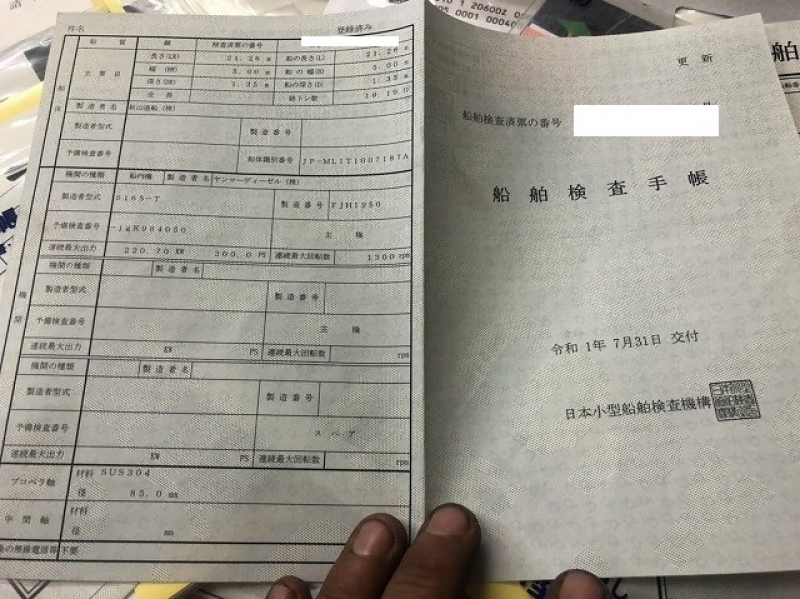 件名
登録済み
船質
鋼
検査済票の番号
船体
主要目
長さ(LR) 21.26 m 船の長さ(L) 21.26 m
幅(BR) 5.00 m 船の幅(B) 5.00 m
深さ(DR) 1.35 m 船の深さ(D) 1.35 m
全長 総トン数 19.19トン
製造者名 秋山造船(株)
製造者型式 製造番号
予備検査番号 船体識別番号 JP-MLIT1007187A
機関
機関の種類 船内機 製造者名 ヤンマーディーゼル(株)
製造者型式 S165-T 製造番号 FJH1950
予備検査番号 -jgK984050 主機
連続最大出力 220.70 KW 300.0 PS 連続最大回転数 1300 rpm
機関の種類 製造者名
製造者型式 製造番号
予備検査番号 主機
連続最大出力 KW PS 連続最大回転数 rpm
機関の種類 製造者名
製造者型式 製造番号
予備検査番号 スペア
連続最大出力 KW PS 連続最大回転数 rpm
プロペラ軸 材料 SUS304
径 85.0 mm
中間軸 材料
径 mm
条の無線電信等 不要
更新
船舶検査済票の番号
船舶検査手帳
令和 1年 7月31日 交付
日本小型船舶検査機構
舶